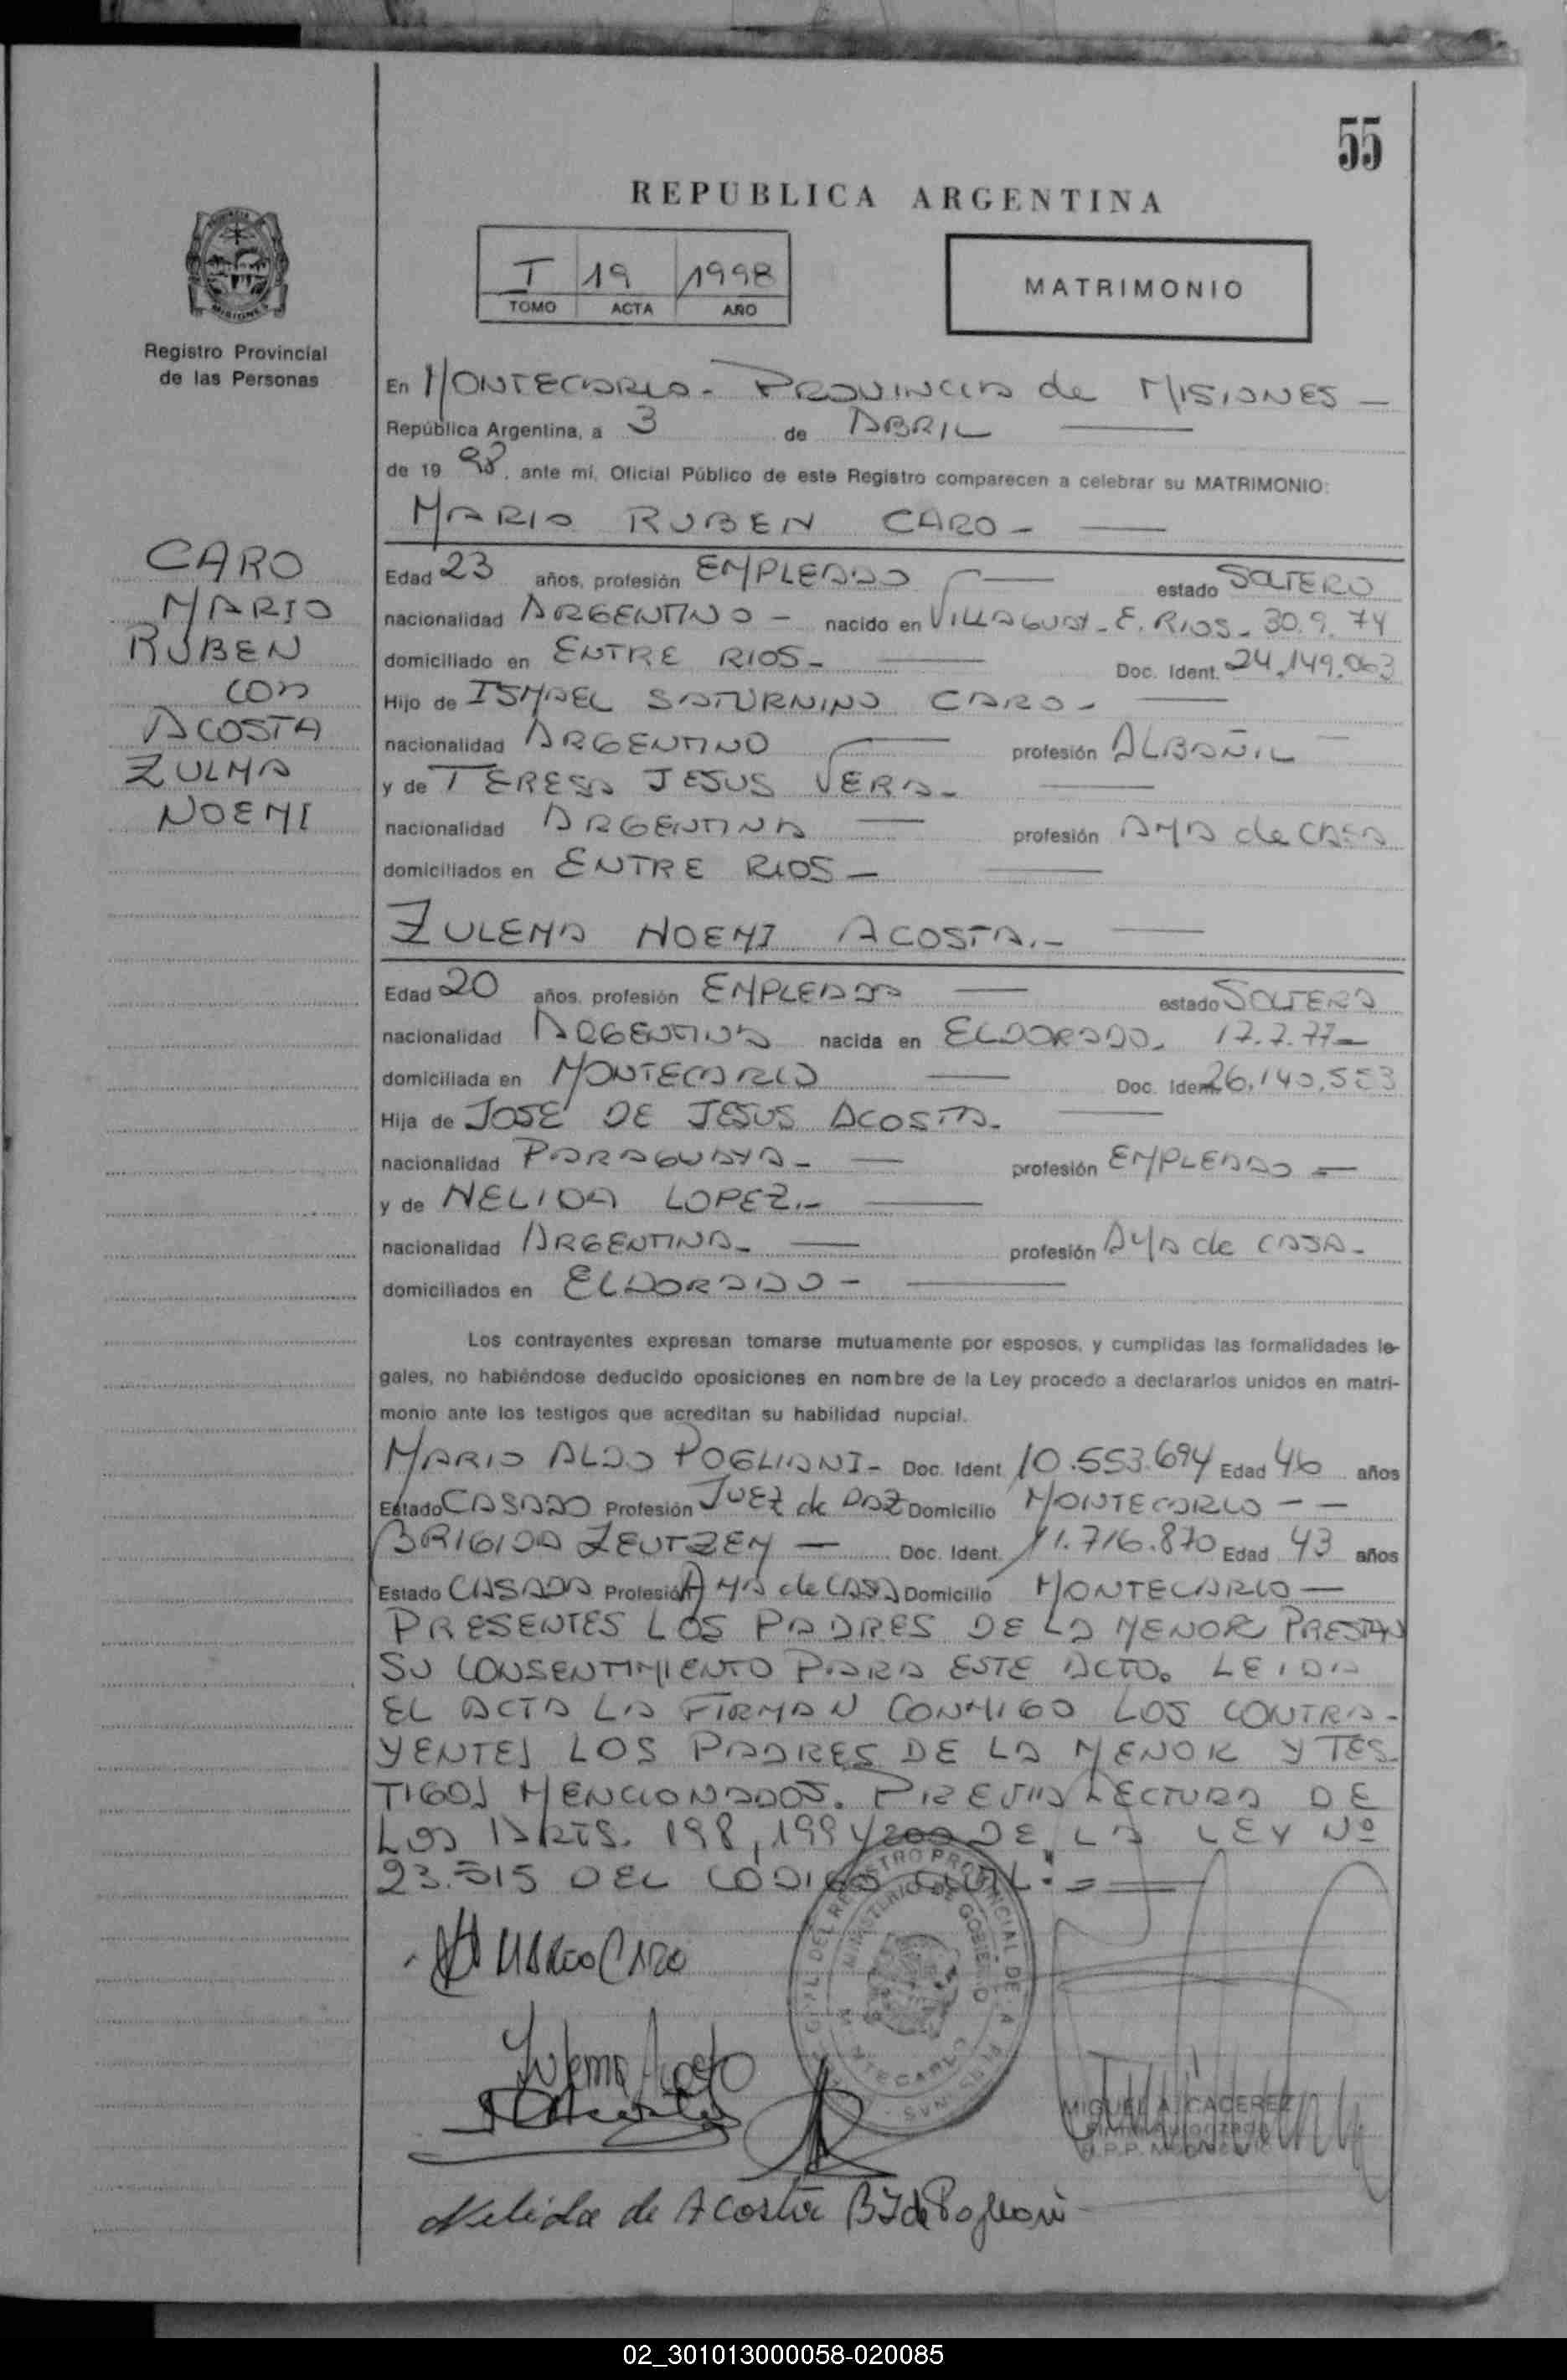 55
REPUBLICA ARGENTINA
I 19 1998
TOMO ACTA AÑO
MATRIMONIO
MISIONES
Registro Provincial
de las Personas
CARO
MARIO
RUBEN
con
ACOSTA
ZULMA
NOEMI
En MONTECARLO - PROVINCIA de MISIONES -
República Argentina, a 3 de ABRIL
de 19 98, ante mí, Oficial Público de este Registro comparecen a celebrar su MATRIMONIO:
MARIO RUBEN CARO -
Edad 23 años, profesión EMPLEADO estado SOLTERO
nacionalidad ARGENTINO - nacido en VILLAGUAY - E. RIOS - 30.9.74
domiciliado en ENTRE RIOS - Doc. Ident. 24.149.063
Hijo de ISMAEL SATURNINO CARO -
nacionalidad ARGENTINO profesión ALBAÑIL -
y de TERESA JESUS VERA -
nacionalidad ARGENTINA profesión AMA de CASA
domiciliados en ENTRE RIOS -
ZULEMA NOEMI ACOSTA.-
Edad 20 años, profesión EMPLEADA estado SOLTERA
nacionalidad ARGENTINA nacida en ELDORADO. 17.7.77 -
domiciliada en MONTECARLO Doc. Ident. 26.140.553
Hija de JOSE DE JESUS ACOSTA.
nacionalidad PARAGUAYA - profesión EMPLEADO -
y de NELIDA LOPEZ.-
nacionalidad ARGENTINA - profesión AMA de CASA -
domiciliados en ELDORADO -
Los contrayentes expresan tomarse mutuamente por esposos, y cumplidas las formalidades le-
gales, no habiéndose deducido oposiciones en nombre de la Ley procedo a declararlos unidos en matri-
monio ante los testigos que acreditan su habilidad nupcial.
MARIO ALDO POGLIANI - Doc. Ident 10.553.694 Edad 46 años
Estado CASADO Profesión JUEZ de PAZ Domicilio MONTECARLO - -
BRIGIDA ZEUTZEM - Doc. Ident. 11.716.870 Edad 43 años
Estado CASADA Profesión AMA de CASA Domicilio MONTECARLO -
PRESENTES LOS PADRES DE LA MENOR PRESTAN
SU CONSENTIMIENTO PARA ESTE ACTO. LEIDA
EL ACTA LA FIRMAN CONMIGO LOS CONTRA-
YENTES LOS PADRES DE LA MENOR Y TES-
TIGOS MENCIONADOS. PREVIA LECTURA DE
LOS ARTS. 198, 199 Y 200 DE LA LEY Nº
23.515 DEL CODIGO CIVIL. =
MARIO CARO
Zulema Acosta
REGISTRO PROVINCIAL DE
MINISTERIO DE GOBIERNO
MONTECARLO
MIGUEL A. CACEREZ
Nelida de Acosta BZ de Pogliani
02_301013000058-020085